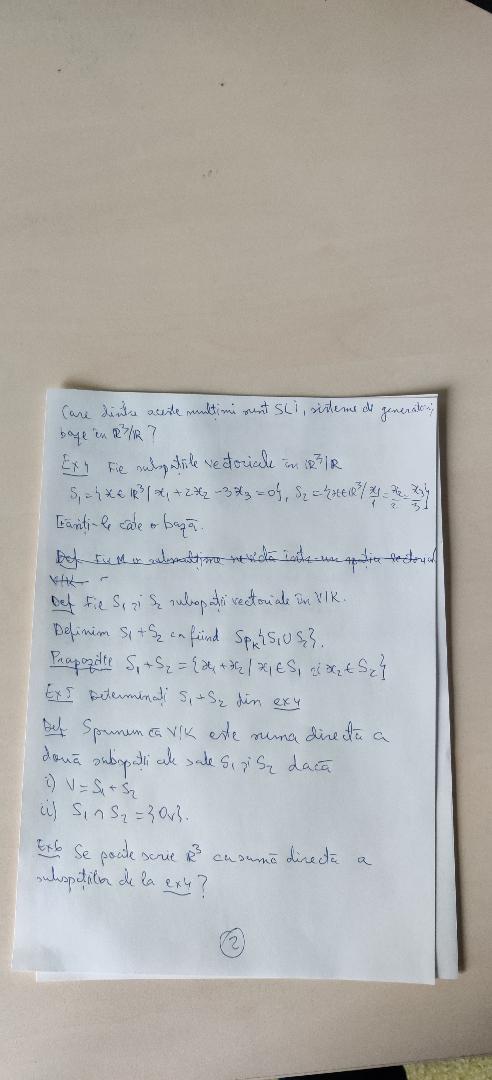 Care dintre aceste mulțimi sunt SLI, sisteme de generatori,
baze în ℝ³/ℝ?
Ex4 Fie subspațiile vectoriale în ℝ³/ℝ
S₁ = {x∈ℝ³ | x₁ + 2x₂ - 3x₃ = 0}, S₂ = {x∈ℝ³ / x₁/1 = x₂/2 = x₃/3}
câte o bază.
Def Fie M o submulțime nevidă într-un spațiu vectorial
V/K
Def Fie S₁ și S₂ subspații vectoriale în V/K.
Definim S₁+S₂ ca fiind Spₖ{S₁∪S₂}.
Propoziție S₁+S₂ = {x₁+x₂ / x₁∈S₁ și x₂∈S₂}
Ex5 Determinați S₁+S₂ din ex4
Def Spunem că V/K este suma directă a
două subspații ale sale S₁ și S₂ dacă
i) V = S₁ + S₂
ii) S₁ ∩ S₂ = {0ᵥ}.
Ex6 Se poate scrie ℝ³ ca sumă directă a
subspațiilor de la ex4?
2